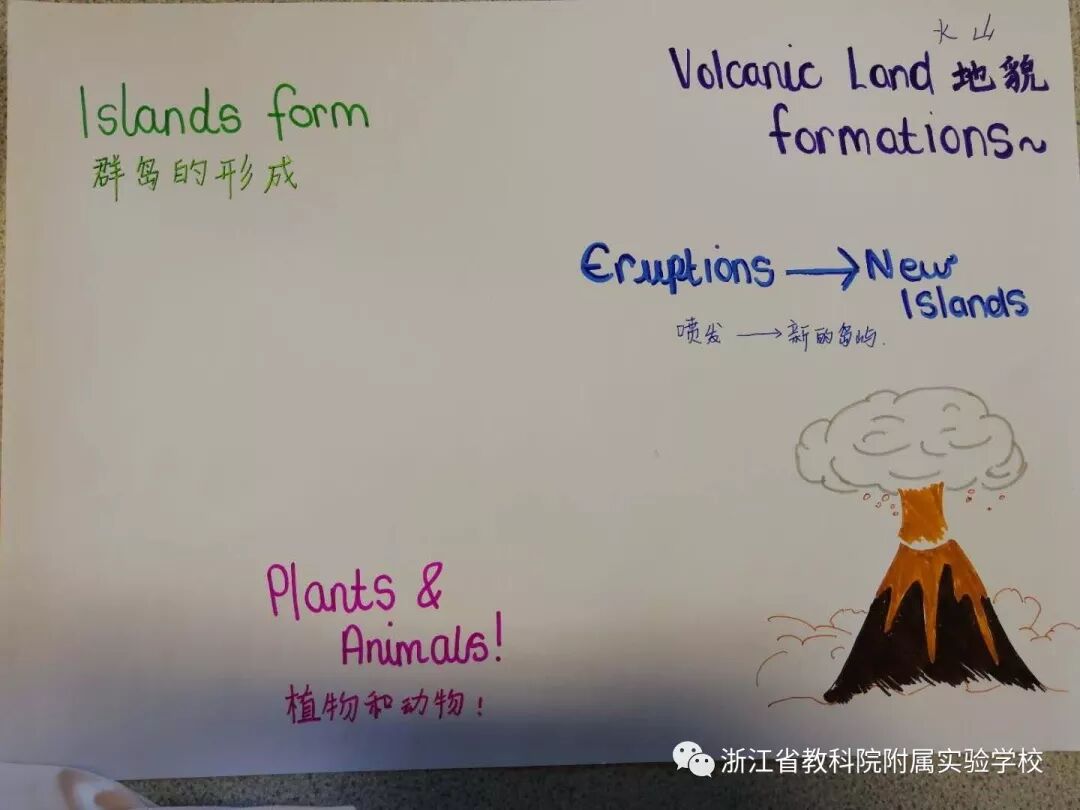 Islands form
群岛的形成
火山
Volcanic Land 地貌
formations~
Eruptions → New
Islands
喷发 → 新的岛屿.
Plants &
Animals!
植物和动物!
浙江省教科院附属实验学校